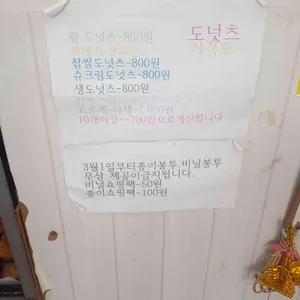 도넛츠
가격표
팥도넛츠-800원
찹쌀도넛츠-800원
슈크림도넛츠-800원
생도넛츠-800원
10개이상--700원으로계산합니다
3월1일부터종이봉투 비닐봉투
무상 제공이금지됩니다.
비닐쇼핑팩-50원
종이쇼핑팩-100원